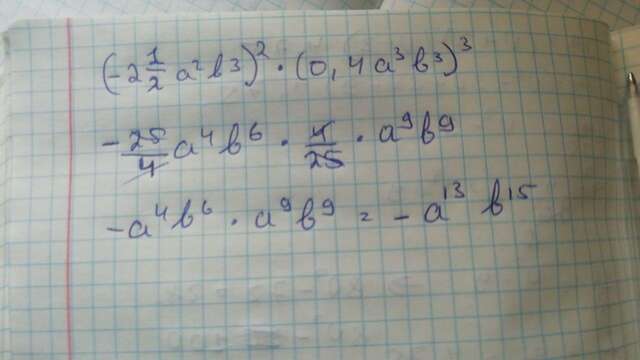 (-2 1/2 a²b³)² · (0,4a³b³)³
- 25/4 a⁴b⁶ · 4/25 · a⁹b⁹
-a⁴b⁶ · a⁹b⁹ = -a¹³ b¹⁵